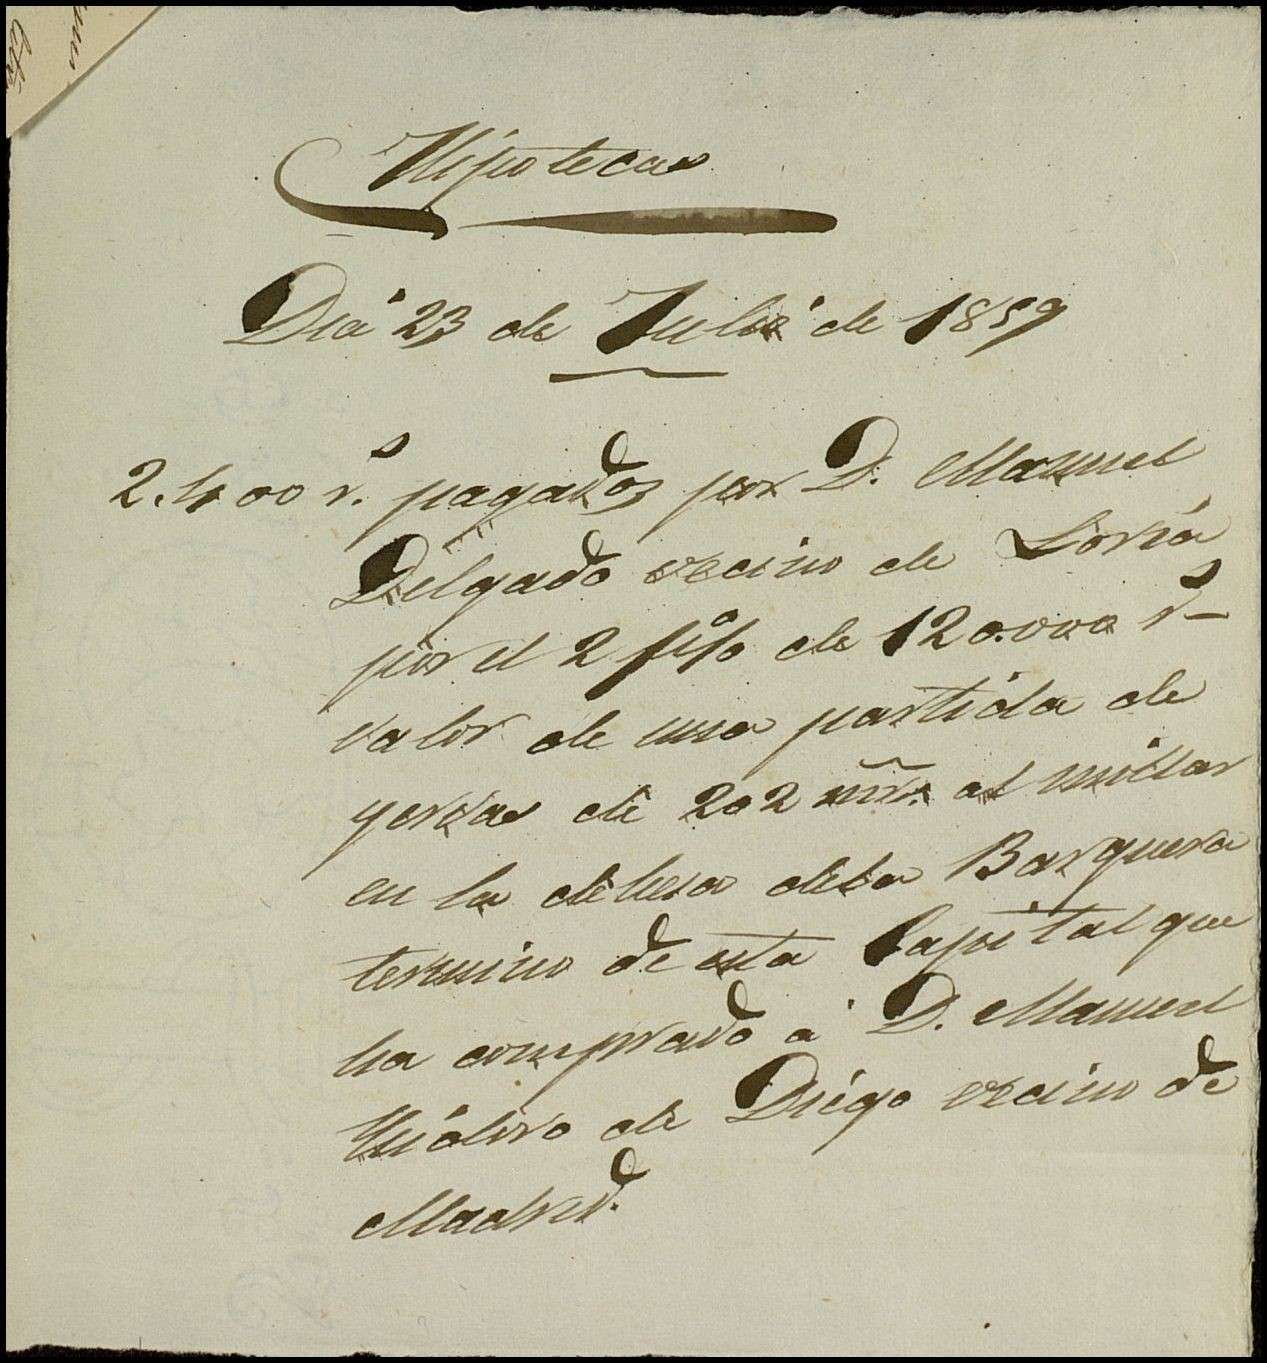 Hipotecas
Dia 23 de Julio de 1859
2.400 r.s pagados por D. Manuel
Delgado vecino de Soria
por el 2 p% de 120.000 r.s
valor de una partida de
yervas de 202 mrs. al millar
en la dehesa dela Barquera
termino de esta Capital que
ha comprado á D. Manuel
de Diego vecino de
Madrid.